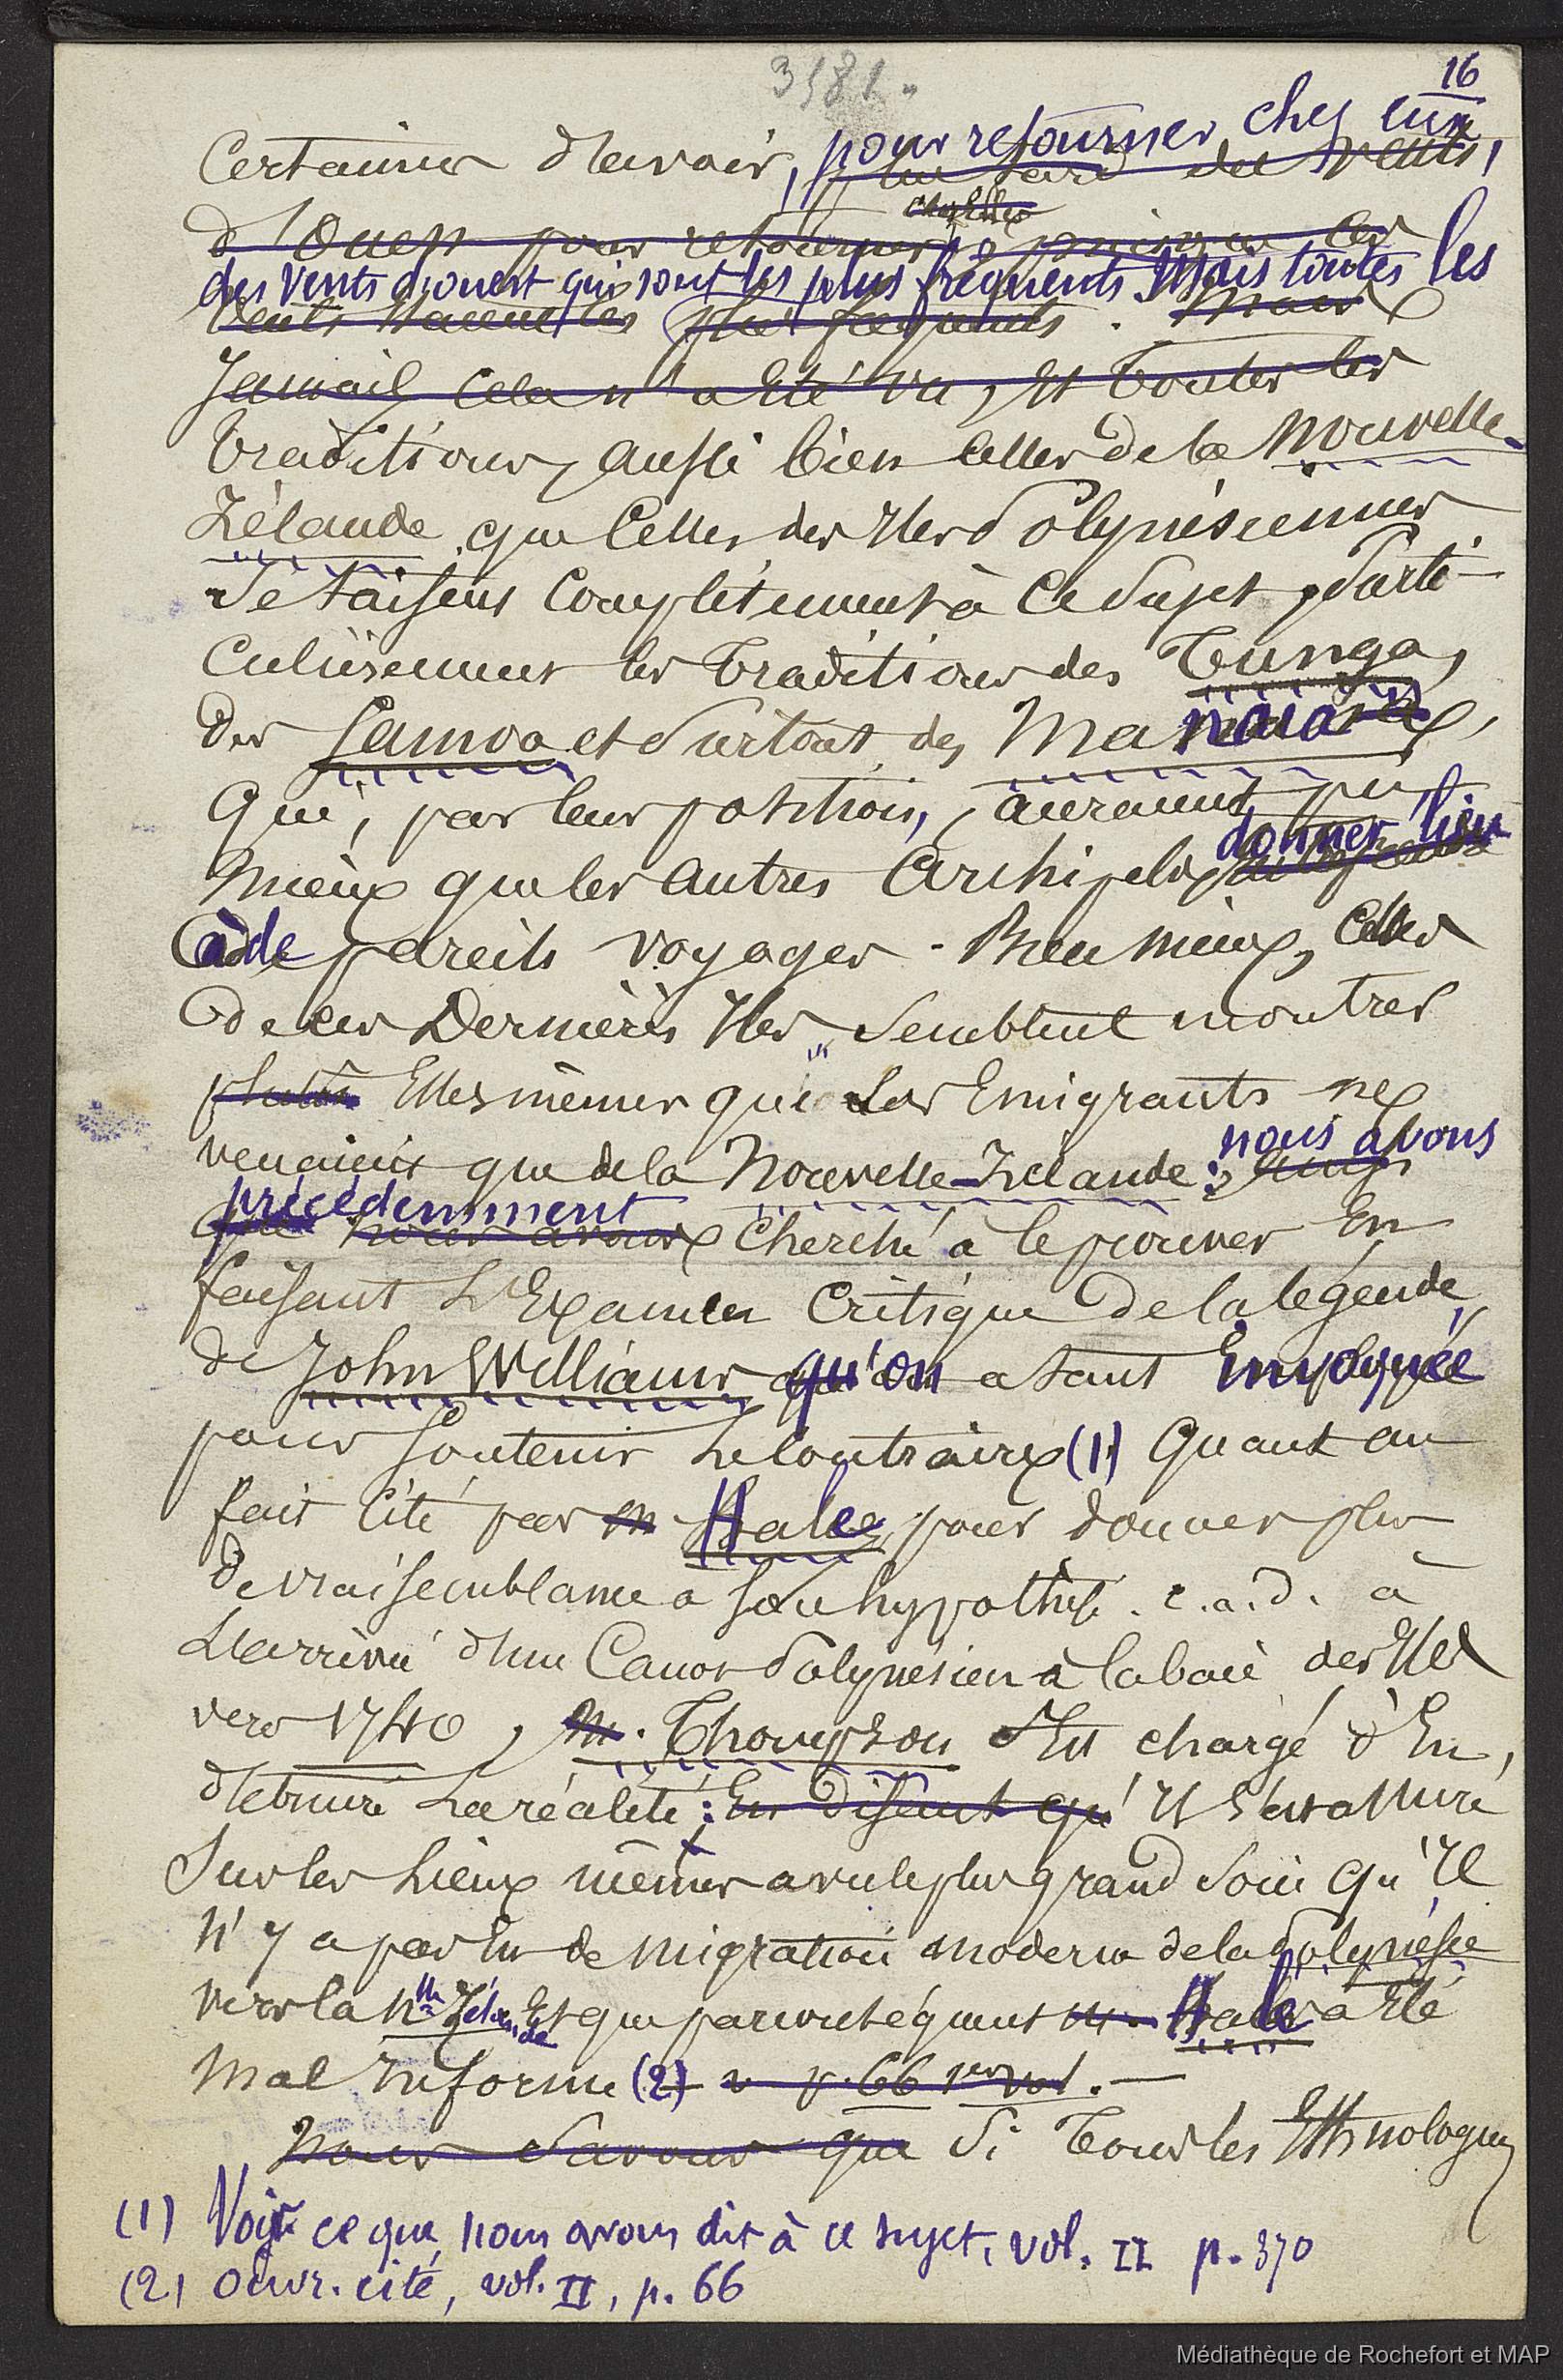 3581.
16
Certaines d'avoir, pour retourner chez eux,
plus tard des vents
d'Ouest pour retourner puisque ces
chez elles
des vents d'ouest qui sont les plus fréquents. Mais toutes les
vents plus fréquents. Mais
Jamais cela n'a été vu, et toutes les
traditions, aussi bien celles de la Nouvelle-
Zélande que celles des Iles Polynésiennes
se taisent complètement à ce sujet, Parti-
culièrement les traditions des Tunga,
des Samoa et surtout des Manaia,
qui, par leur position, auraient pu
mieux que les autres Archipels donner lieu
à de pareils voyages. Bien mieux, celles
de ces dernières Iles, semblent montrer
plutôt Elles mêmes que les Emigrants ne
venaient que de la Nouvelle-Zélande : nous avons
précédemment
que nous avons cherché à le prouver En
faisant L'Examen Critique de la légende
de John Williams qu'on a tant invoquée
pour soutenir le contraire (1) Quant au
fait cité par M Hale, pour donner plus
de vraisemblance à son hypothèse. c.a.d. à
L'arrivée d'un Canot Polynésien à la baie des Iles
vers 1740, M. Thompson s'est chargé d'En
détruire La réalité : En disant qu' Il s'est assuré
Sur les Lieux mêmes avec le plus grand soin qu'Il
n'y a pas eu de migration moderne de la Polynésie
vers la Nlle Zélande Et que par conséquent M. Hale a été
mal informé (2) v p. 66 1er vol. —
Nous savons que Si Tous les Ethnologues
(1) Voir ce que nous avons dit à ce sujet, vol. II p. 370
(2) Ouvr. cité, vol. II, p. 66
Médiathèque de Rochefort et MAP